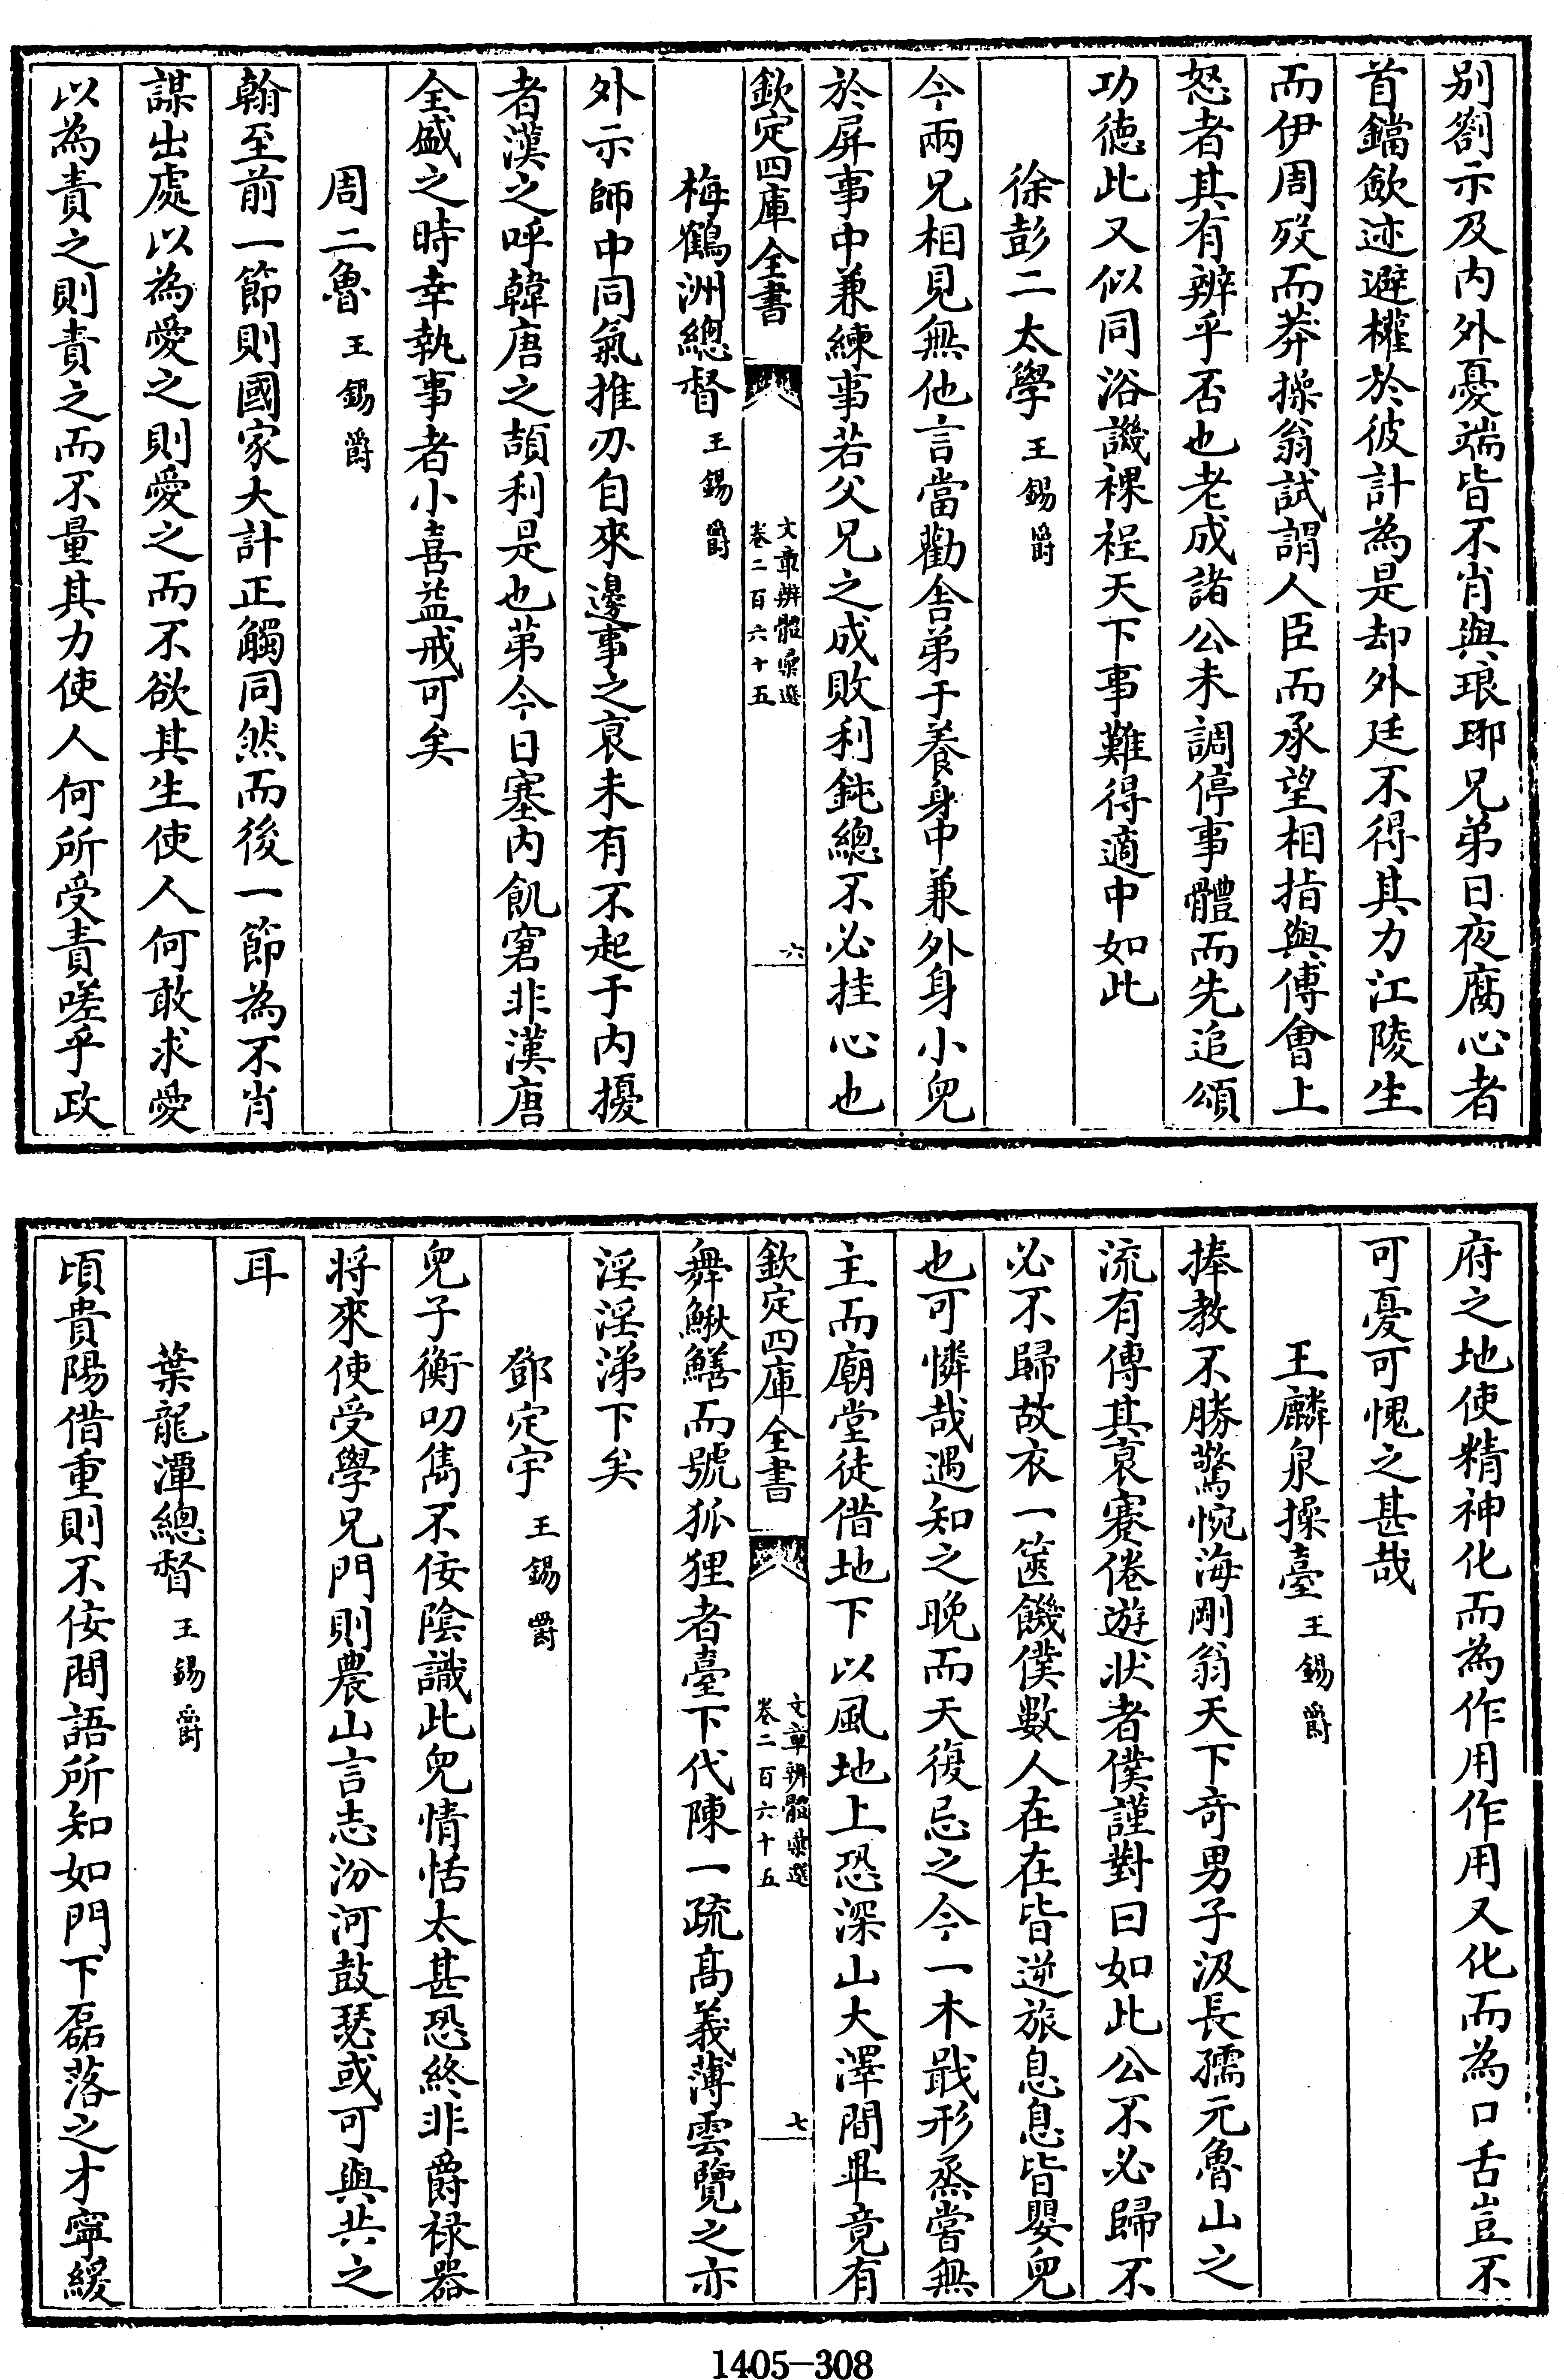 别劄示及内外憂端皆不肖與琅琊兄弟日夜腐心者
首鐺斂迹避權於彼計為是却外廷不得其力江陵生
而伊周歿而莽操翁試謂人臣而承望相指與傅會上
怒者其有辨乎否也老成諸公未調停事體而先追頌
功徳此又似同浴譏裸裎天下事難得適中如此
徐彭二太學王錫爵
今兩兄相見無他言當勸舍弟于養身中兼外身小兒
於屏事中兼練事若父兄之成敗利鈍總不必挂心也
欽定四庫全書
文章辨體彚選
卷二百六十五
六
梅鶴洲總督王錫爵
外示師中同氣推刃自來邊事之哀未有不起于内擾
者漢之呼韓唐之頡利是也第今日塞内飢窘非漢唐
全盛之時幸執事者小喜益戒可矣
周二魯王錫爵
翰至前一節則國家大計正觸同然而後一節為不肖
謀出處以為愛之則愛之而不欲其生使人何敢求愛
以為責之則責之而不量其力使人何所受責嗟乎政
府之地使精神化而為作用作用又化而為口舌豈不
可憂可愧之甚哉
王麟泉操臺王錫爵
捧教不勝驚惋海剛翁天下奇男子汲長孺元魯山之
流有傳其哀蹇倦遊狀者僕謹對曰如此公不必歸不
必不歸故衣一篋饑僕數人在在皆逆旅息息皆嬰兒
也可憐哉遇知之晚而天復忌之今一木戢形烝嘗無
主而廟堂徒借地下以風地上恐深山大澤間畢竟有
欽定四庫全書
文章辨體彚選
卷二百六十五
七
舞鰍鱔而號狐狸者臺下代陳一疏髙義薄雲覽之亦
淫淫涕下矣
鄧定宇王錫爵
兒子衡叨雋不佞陰識此兒情恬太甚恐終非爵禄器
将來使受學兄門則農山言志汾河鼓瑟或可與共之
耳
葉龍潭總督王錫爵
頃貴陽借重則不佞間語所知如門下磊落之才寧緩
1405-308